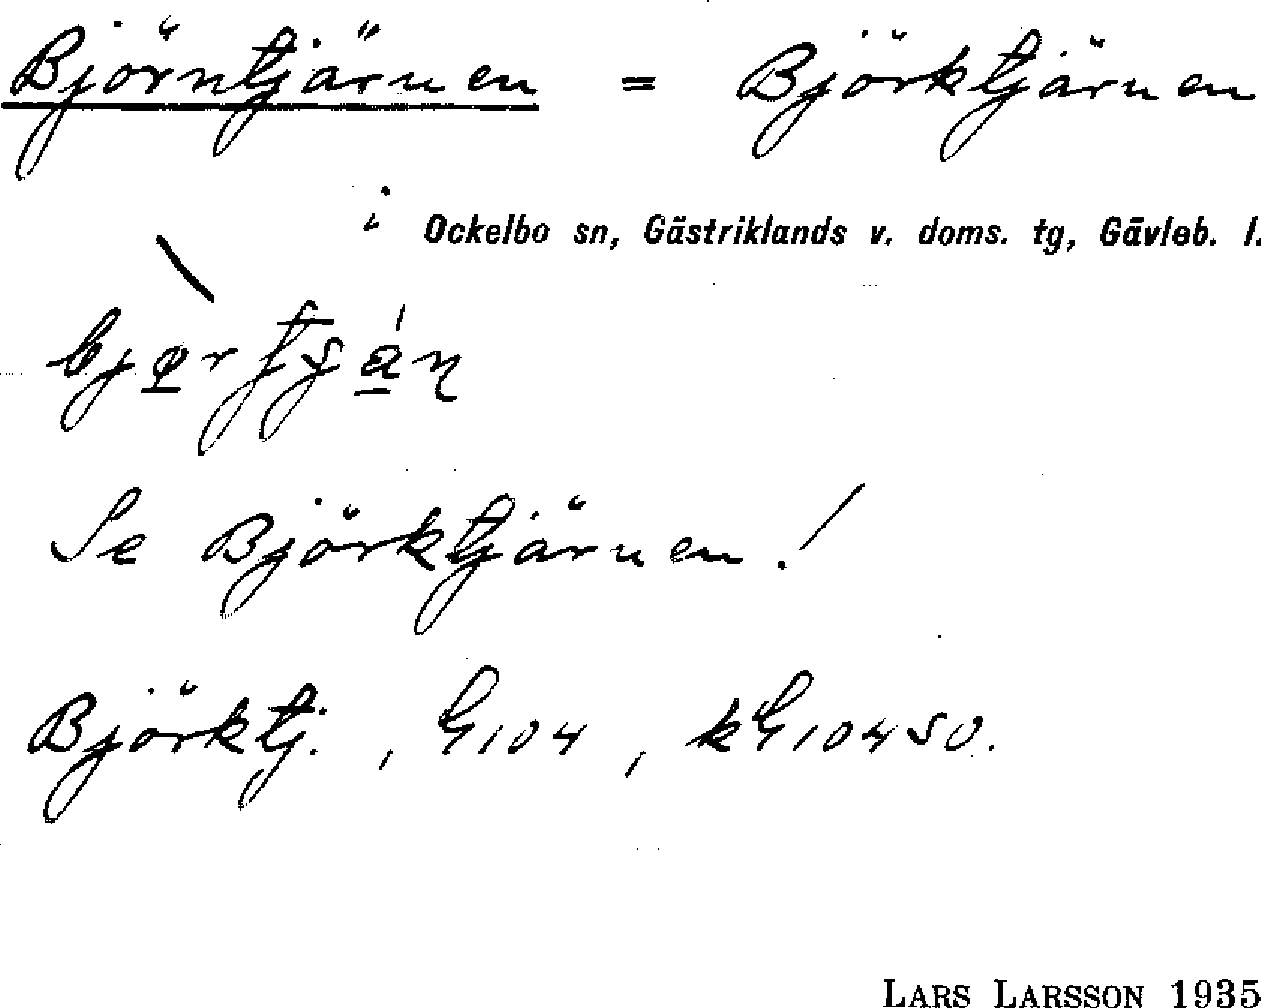 Björntjärnen = Björktjärnen
i Ockelbo sn, Gästriklands v. doms. tg, Gävleb. l.
Se Björktjärnen!
Björktj. , G104 , kG10450.
LARS LARSSON 1935